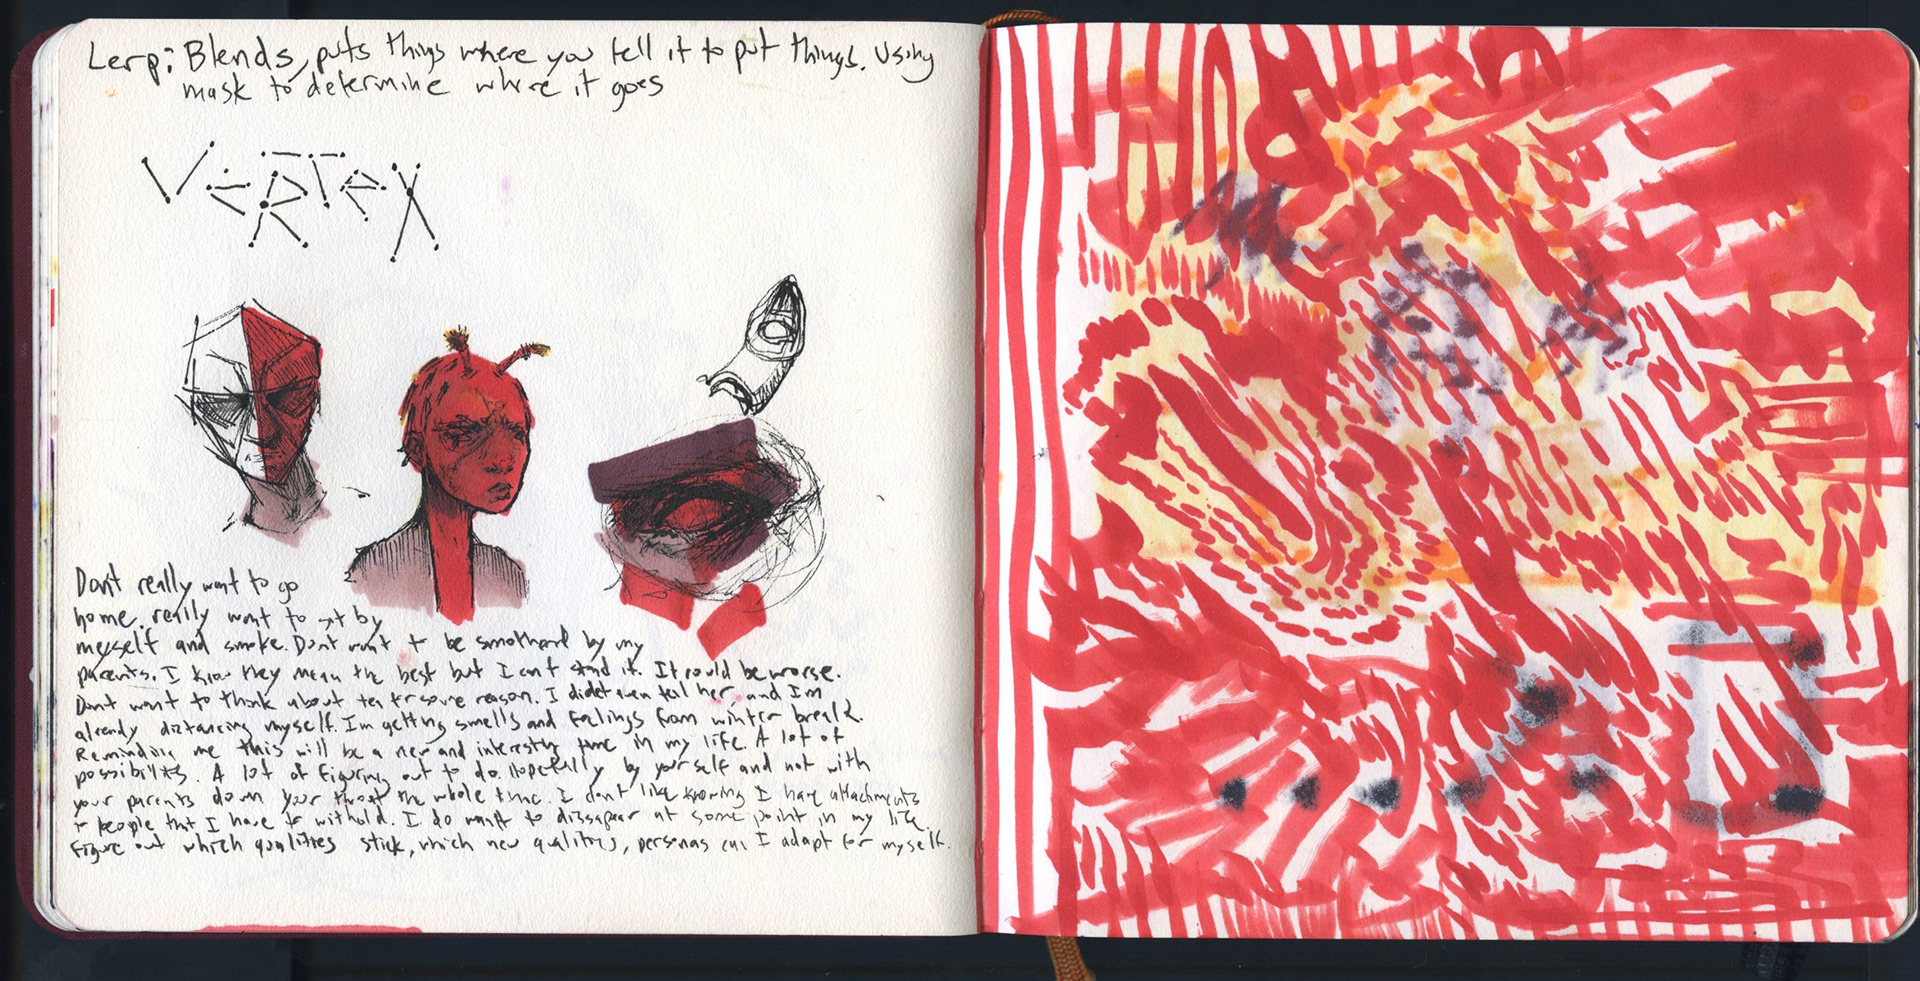 Lerp: Blends, puts things where you tell it to put things. Using
mask to determine where it goes
VeRTeX
Dont really want to go
home. really want to by
myself and smoke. Dont want to be smotherd by my
parents. I know they mean the best but I cant stand it. It could be worse.
Dont want to think about for some reason. I didnt even tell her, and I'm
already distancing myself. I'm getting smells and feelings from winter break.
Reminding me this will be a new and interesting time in my life. A lot of
possibilits. A lot of figuring out to do. Hopefully by yourself and not with
your parents down your throat the whole time. I don't like knowing I have attachments
to people that I have to withold. I do want to dissapear at some point in my life.
Figure out which qualities stick, which new qualitys, personas can I adapt for myself.